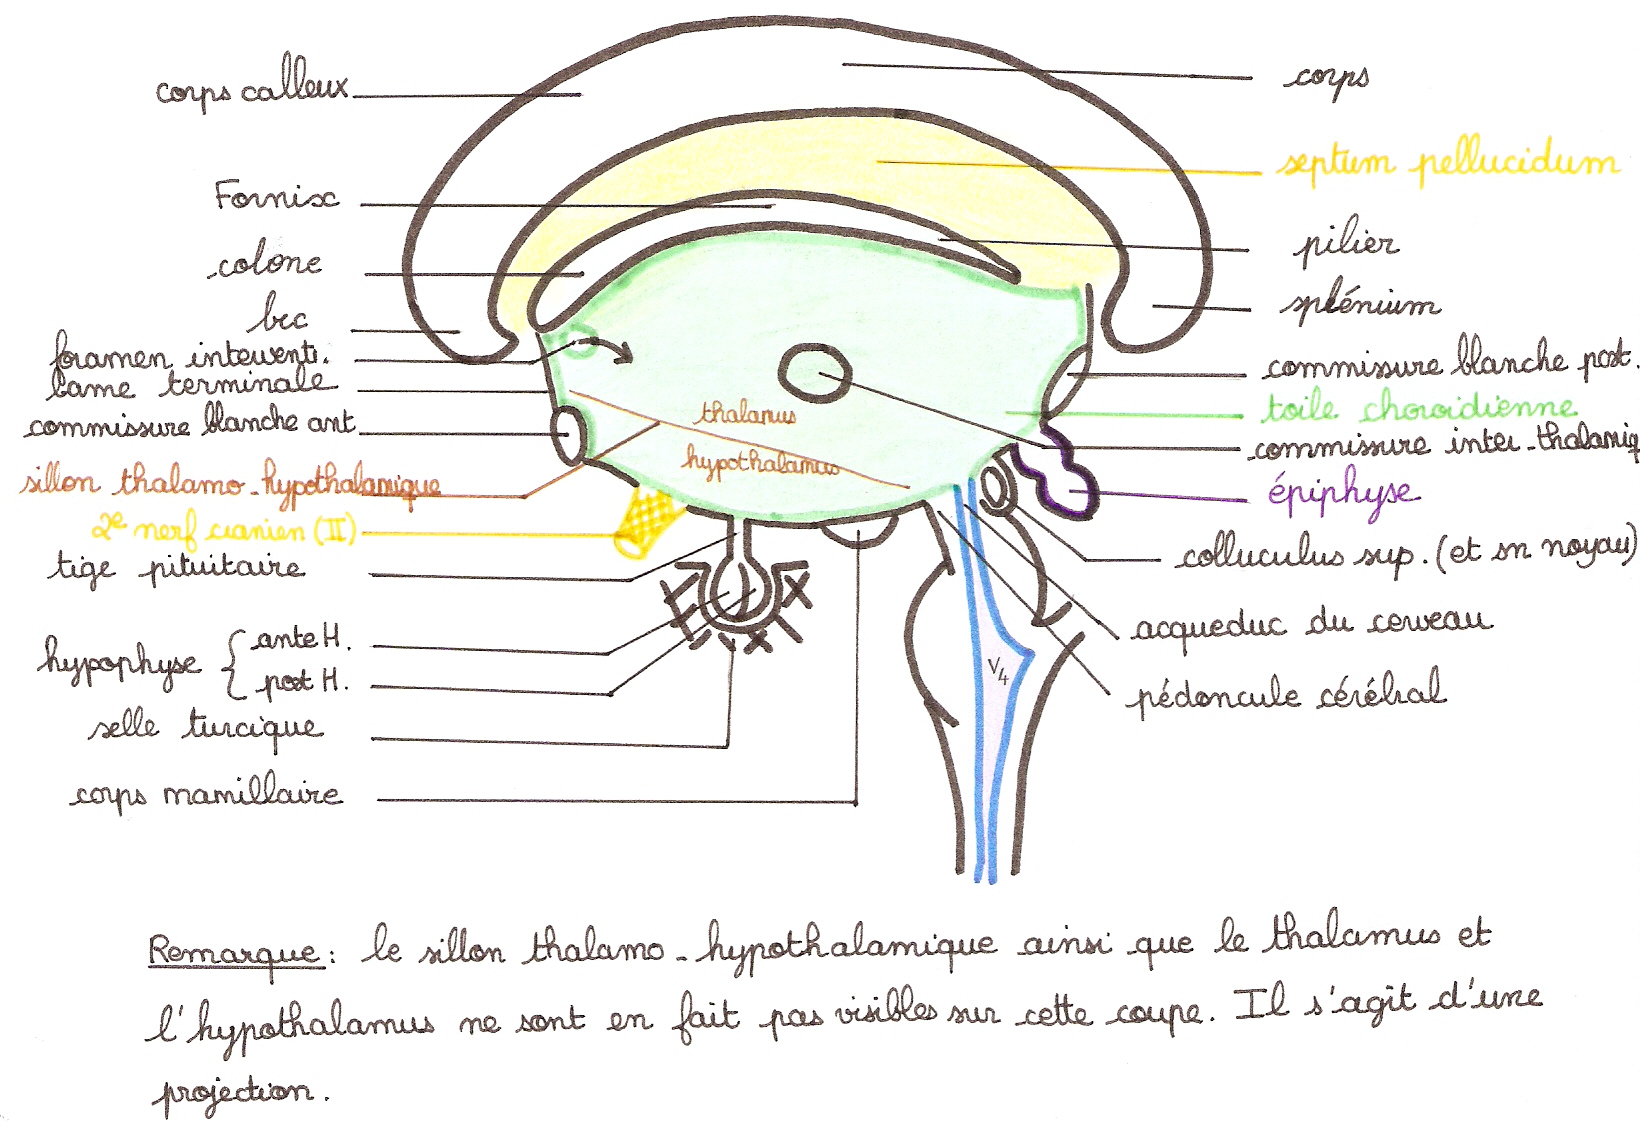 corps calleux
Fornix
colone
bec
foramen interventi.
lame terminale
commissure blanche ant.
sillon thalamo-hypothalamique
2e nerf cranien (II)
tige pituitaire
hypophyse { ante H.
post H.
selle turcique
corps mamillaire
thalamus
hypothalamus
V4
corps
septum pellucidum
pilier
splénium
commissure blanche post.
toile choroidienne
commissure inter-thalamiq
épiphyse
colluculus sup. (et sn noyau)
acqueduc du cerveau
pédoncule cérébral
Remarque : le sillon thalamo-hypothalamique ainsi que le thalamus et
l'hypothalamus ne sont en fait pas visibles sur cette coupe. Il s'agit d'une
projection.